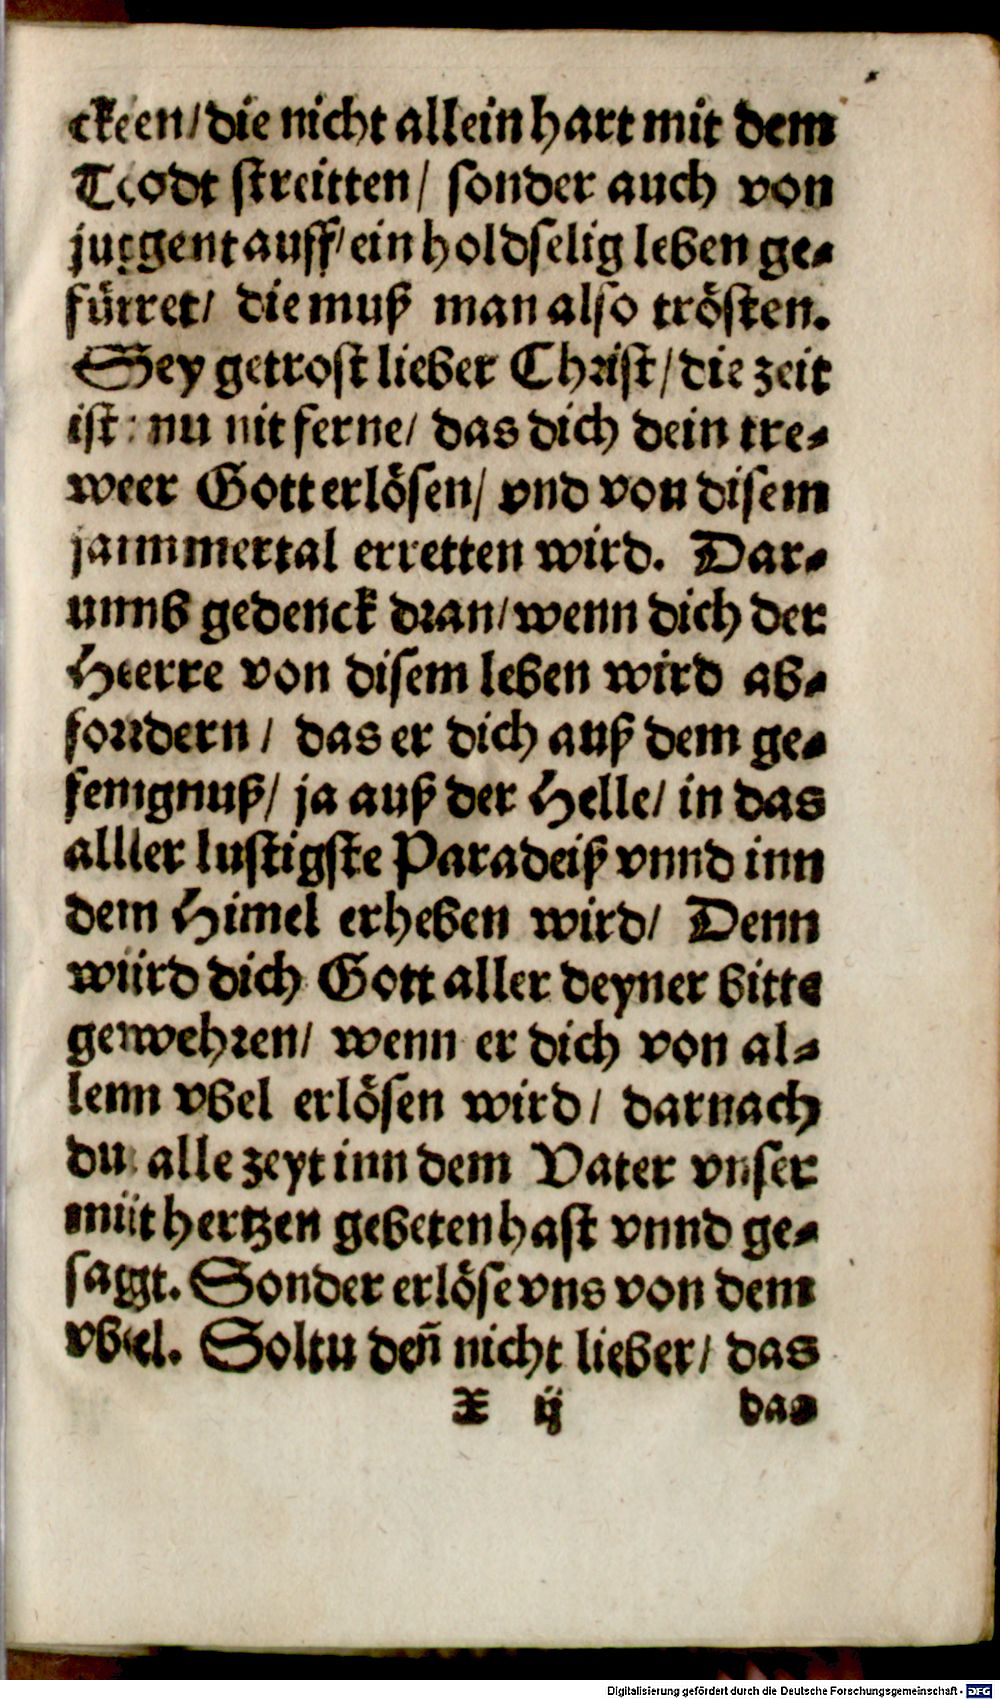 cken/ die nicht allein hart mit dem
Todt streitten/ sonder auch von
jugent auff/ ein holdselig leben ge-
füret/ die muß man also trösten.
Sey getrost lieber Christ/ die zeit
ist nu nit ferne/ das dich dein tre-
wer Gott erlösen/ vnd von disem
jammertal erretten wird. Dar-
umb gedenck dran/ wenn dich der
Herre von disem leben wird ab-
sondern/ das er dich auß dem ge-
fengnuß/ ja auß der Helle/ in das
aller lustigste Paradeiß vnnd inn
dem Himel erheben wird/ Denn
wird dich Gott aller deyner bitte
gewehren/ wenn er dich von al-
lenn vbel erlösen wird/ darnach
du alle zeyt inn dem Vater vnser
mit hertzen gebeten hast vnnd ge-
sagt. Sonder erlöse vns von dem
vbel. Soltu deñ nicht lieber/ das
X ij das
Digitalisierung gefördert durch die Deutsche Forschungsgemeinschaft - DFG